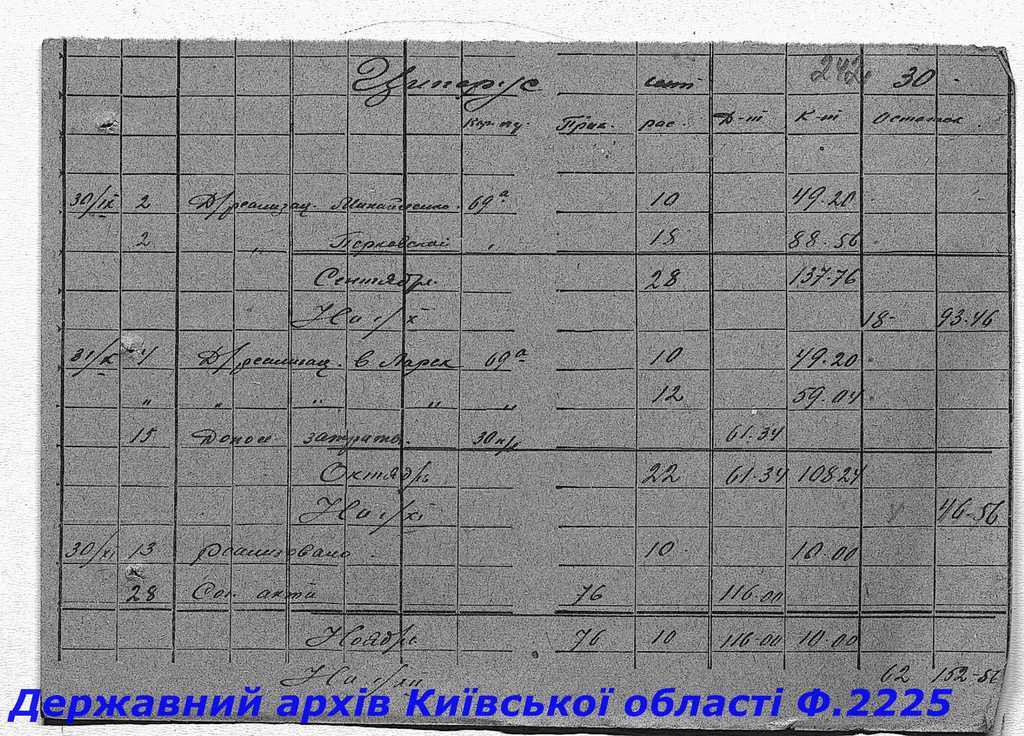 Циперус 242 30
Прих. рас. Д-т К-т Остаток
30/IX 2 Д/реализац. 69а 10 49.20
2 " " 18 88.56
Сентябрь 28 137.76
На 1/X 18 93.46
31/X 4 Д/реализац. в Ларек 69а 10 49.20
" " " " " 12 59.04
15 затраты. 61.34
Октябрь 22 61.34 108 24
На 1/XI 46-56
30/XI 13 реализовано 10 10.00
28 76 116.00
Ноябрь 76 10 116-00 10.00
На 1/XII 62 152-56
Державний архів Київської області Ф.2225